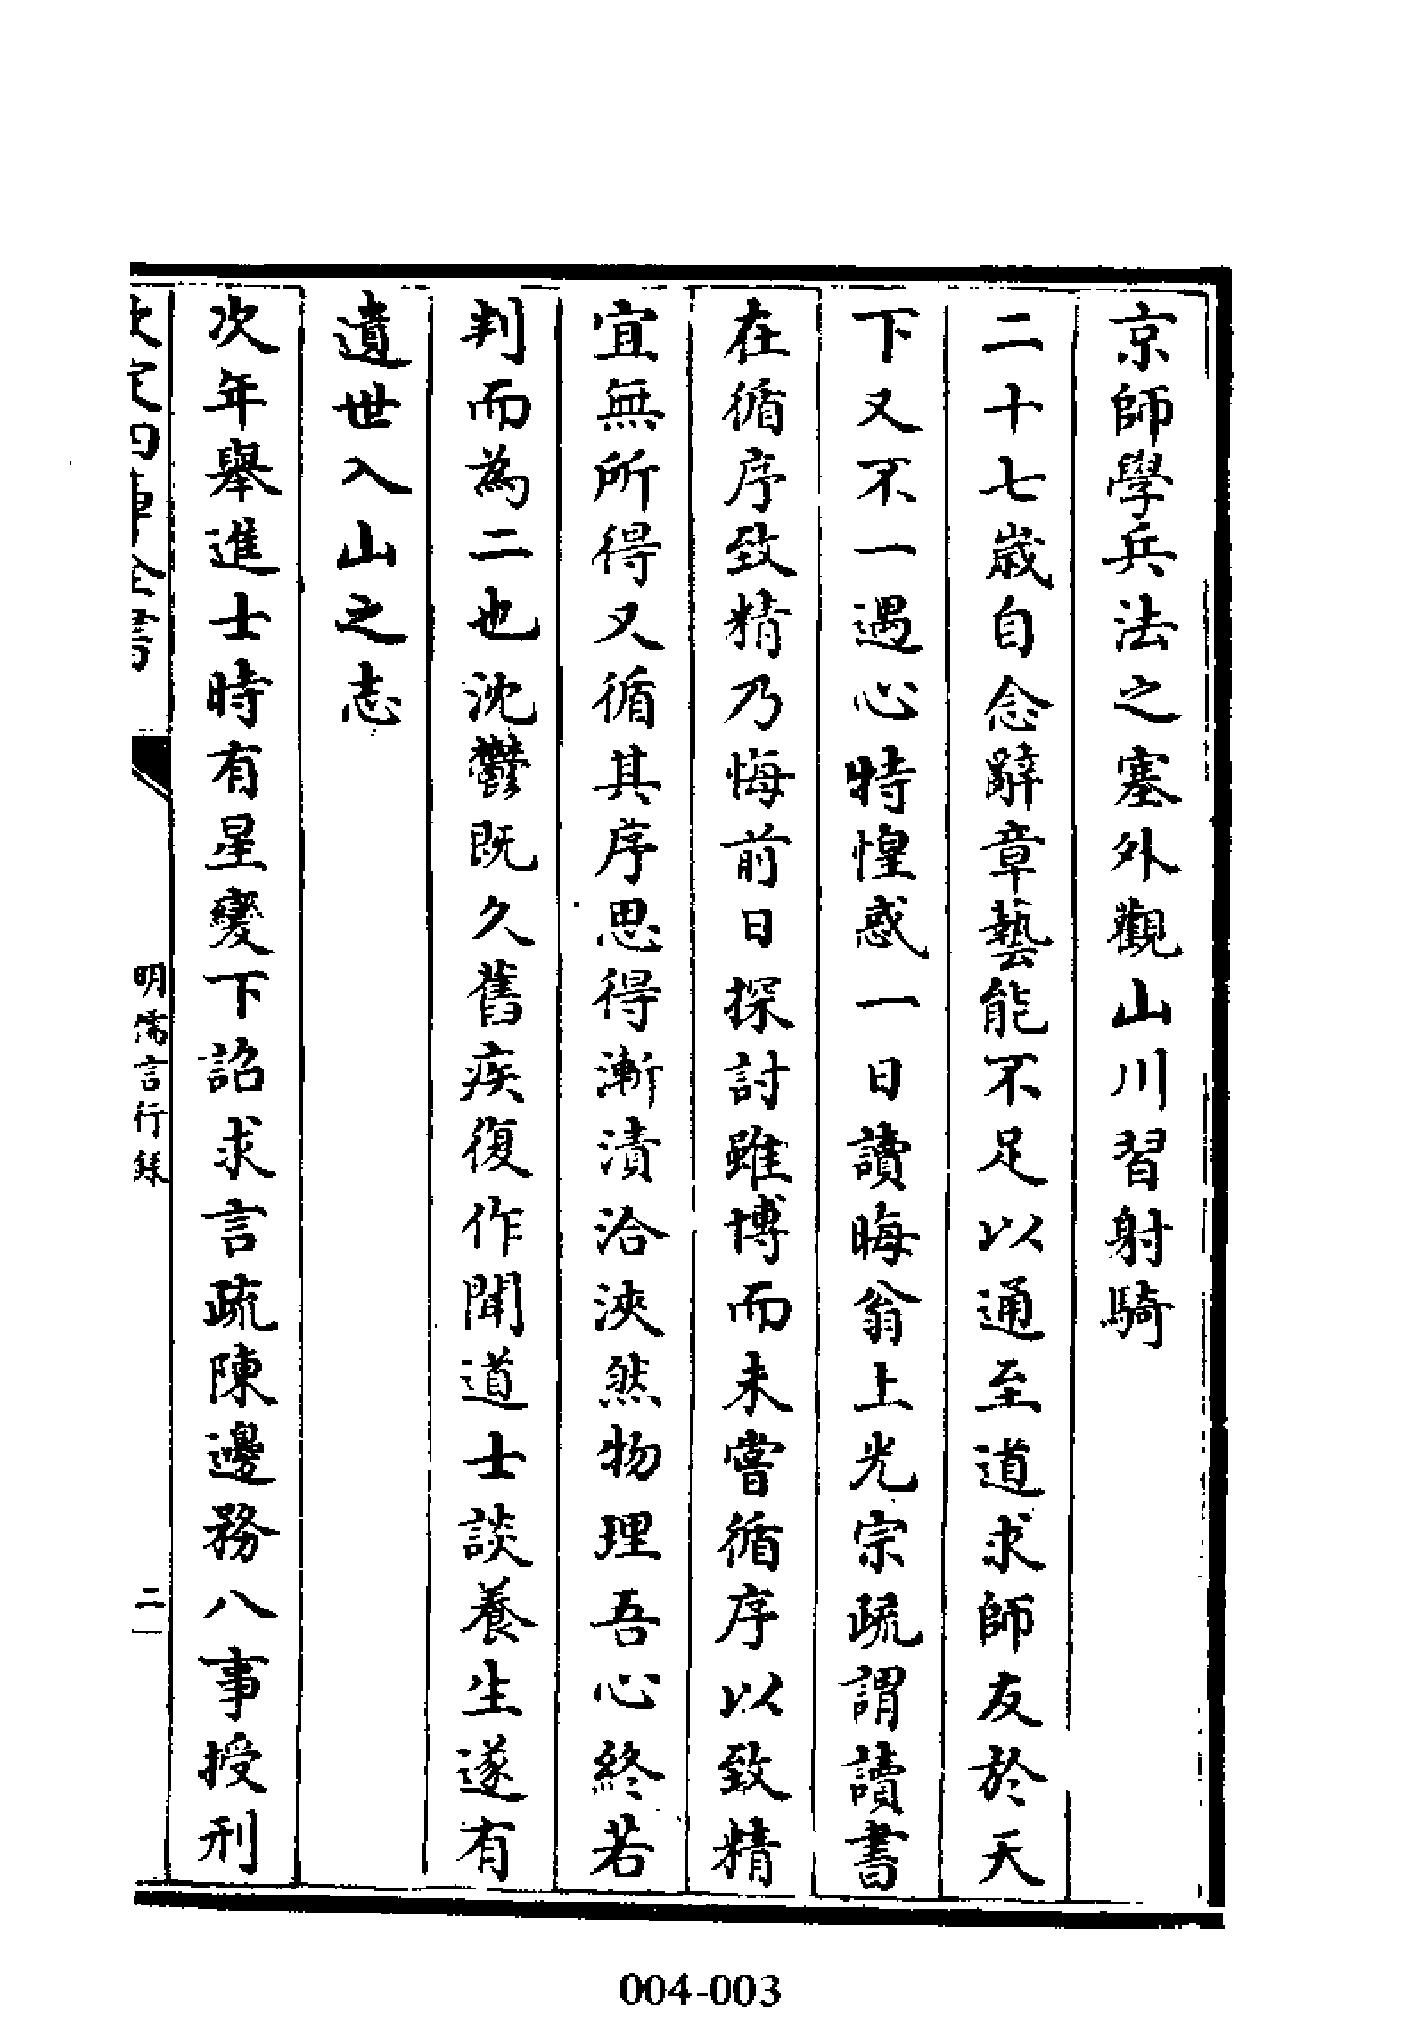 京師學兵法之塞外觀山川習射騎
二十七歳自念辭章藝能不足以通至道求師友於天
下又不一遇心特惶惑一日讀晦翁上光宗疏謂讀書
在循序致精乃悔前日探討雖博而未嘗循序以致精
宜無所得又循其序思得漸漬洽浹然物理吾心終若
判而為二也沈鬱既久舊疾復作聞道士談養生遂有
遺世入山之志
次年舉進士時有星變下詔求言疏陳邊務八事授刑
欽定四庫全書
明儒言行録
二
004-003